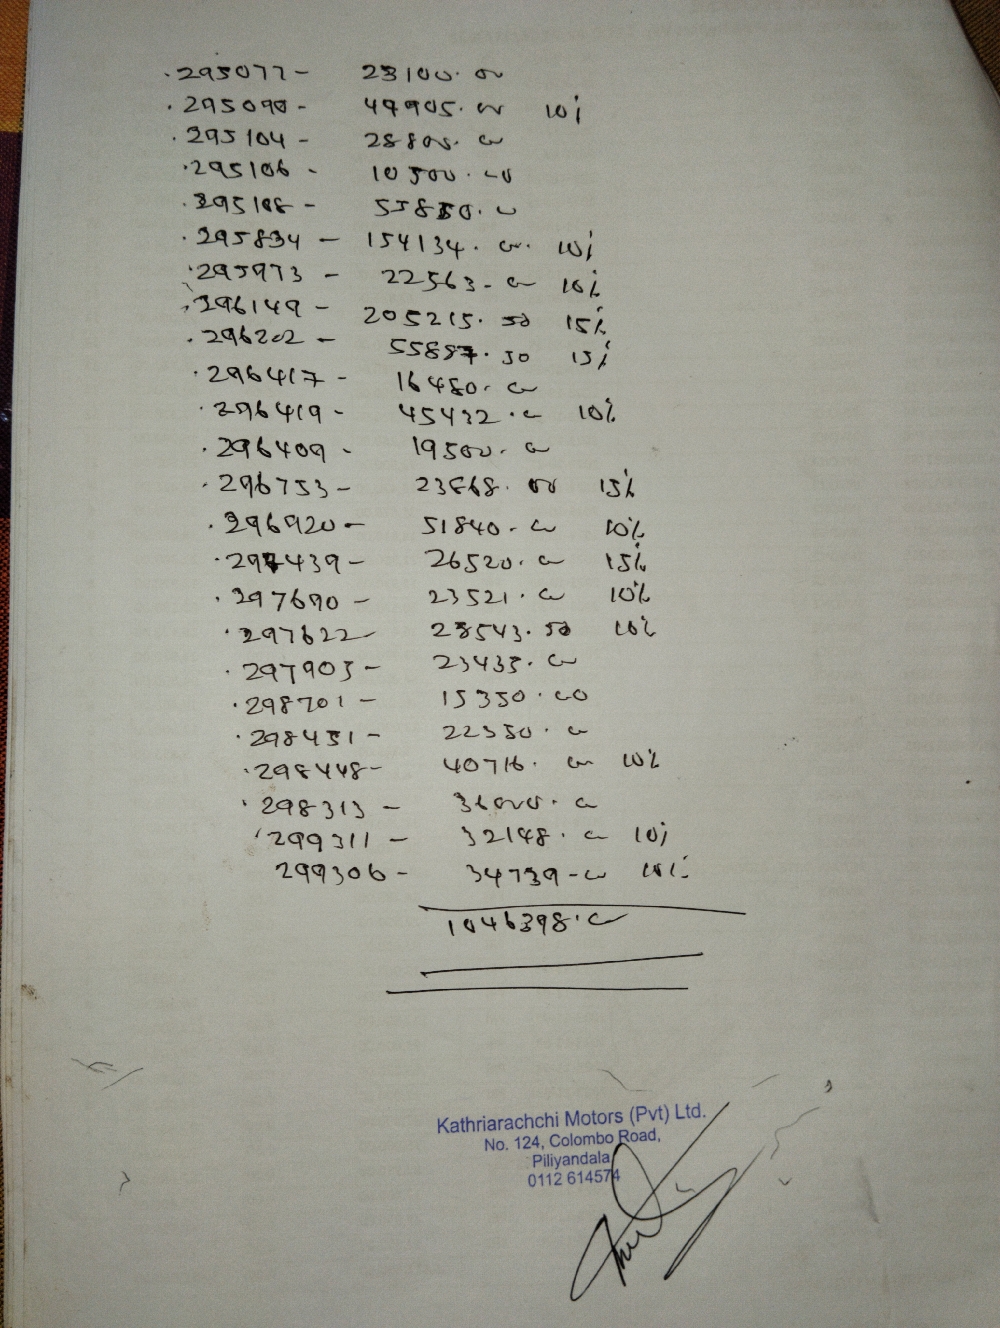 295077 - 23100.00
295090 - 49905.00 10%
295104 - 28805.00
295106 - 10500.00
295108 - 55850.00
295834 - 154134.00 10%
295973 - 22563.00 10%
296149 - 205215.50 15%
296202 - 55897.50 15%
296417 - 16480.00
296419 - 45432.00 10%
296409 - 19500.00
296753 - 23868.00 15%
296920 - 51840.00 10%
297439 - 26520.00 15%
297690 - 23521.00 10%
297622 - 28543.50 10%
297903 - 23435.00
298701 - 15350.00
298451 - 22350.00
298448 - 40716.00 10%
298313 - 36000.00
299311 - 32148.00 10%
299306 - 34739.00 10%
1046398.00
Kathriarachchi Motors (Pvt) Ltd.
No. 124, Colombo Road,
Piliyandala
0112 614574